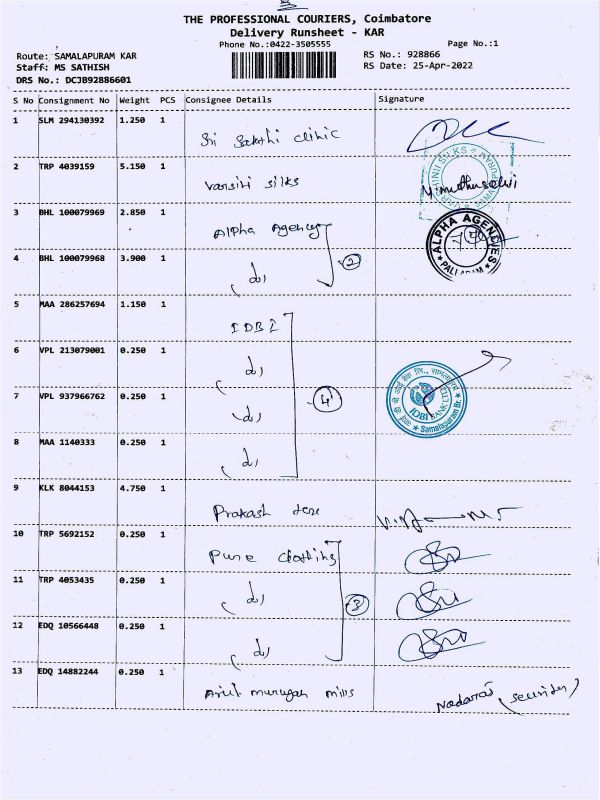 3
THE PROFESSIONAL COURIERS, Coimbatore
Delivery Runsheet - KAR
Phone No.:0422-3505555
Page No.:1
Route: SAMALAPURAM KAR
RS No.: 928866
Staff: MS SATHISH
RS Date: 25-Apr-2022
DRS No.: DCJB92886601
S No Consignment No Weight PCS Consignee Details Signature
1 SLM 294130392 1.250 1 Sri Sakthi clinic
2 TRP 4039159 5.150 1 Varsini silks
3 BHL 100079969 2.850 1 Alpha Agency
ALPHA AGENCIES
PALLADAM
4 BHL 100079968 3.900 1 do
2
5 MAA 286257694 1.150 1 IDBI
6 VPL 213079001 0.250 1 do
7 VPL 937966762 0.250 1 do
4
IDBI BANK LTD.
Samalapuram Br.
8 MAA 1140333 0.250 1 do
9 KLK 8044153 4.750 1 Prakash
10 TRP 5692152 0.250 1 Pure
11 TRP 4053435 0.250 1 do
3
12 EDQ 10566448 0.250 1 do
13 EDQ 14882244 0.250 1 Arul murugan mills